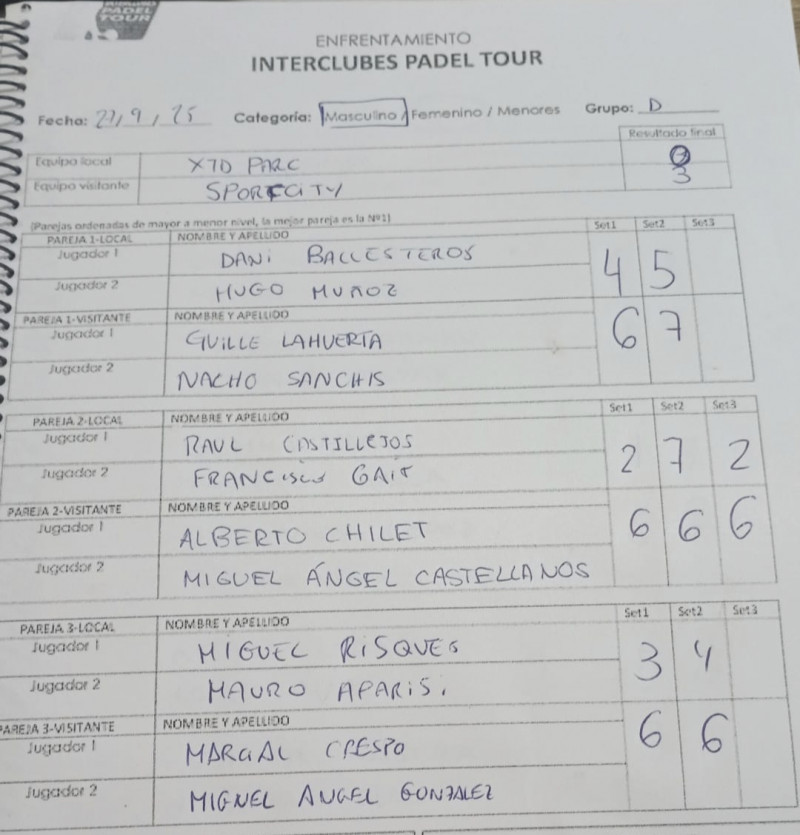 PADEL
TOUR
ENFRENTAMIENTO
INTERCLUBES PADEL TOUR
Fecha: 27/9/25 Categoría: Masculino / Femenino / Menores Grupo: D
Resultado final
Equipo local XTD PARC 0
Equipo visitante SPORTCITY 3
(Parejas ordenadas de mayor a menor nivel, la mejor pareja es la Nº1) Set1 Set2 Set3
PAREJA 1-LOCAL NOMBRE Y APELLIDO
Jugador 1 DANI BALLESTEROS 4 5
Jugador 2 HUGO MUÑOZ
PAREJA 1-VISITANTE NOMBRE Y APELLIDO
Jugador 1 GUILLE LAHUERTA 6 7
Jugador 2 NACHO SANCHIS
PAREJA 2-LOCAL NOMBRE Y APELLIDO Set1 Set2 Set3
Jugador 1 RAUL CASTILLEJOS 2 7 2
Jugador 2 FRANCISCO
PAREJA 2-VISITANTE NOMBRE Y APELLIDO
Jugador 1 ALBERTO CHILET 6 6 6
Jugador 2 MIGUEL ÁNGEL CASTELLANOS
PAREJA 3-LOCAL NOMBRE Y APELLIDO Set1 Set2 Set3
Jugador 1 MIGUEL RISQUES 3 4
Jugador 2 MAURO APARIS.
PAREJA 3-VISITANTE NOMBRE Y APELLIDO
Jugador 1 MARCIAL CRESPO 6 6
Jugador 2 MIGUEL ANGEL GONZALEZ